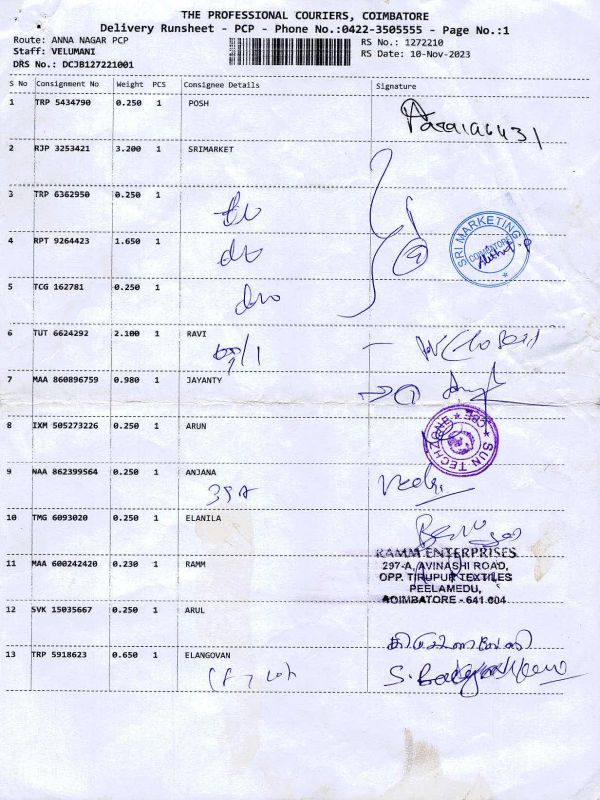 THE PROFESSIONAL COURIERS, COIMBATORE
Delivery Runsheet - PCP - Phone No.:0422-3505555 - Page No.:1
Route: ANNA NAGAR PCP
Staff: VELUMANI
DRS No.: DCJB127221001
RS No.: 1272210
RS Date: 10-Nov-2023
S No Consignment No Weight PCS Consignee Details Signature
1 TRP 5434790 0.250 1 POSH
2 RJP 3253421 3.200 1 SRIMARKET
3 TRP 6362950 0.250 1
SRI MARKETING
COIMBATORE
4 RPT 9264423 1.650 1
5 TCG 162781 0.250 1
6 TUT 6624292 2.100 1 RAVI
7 MAA 860896759 0.980 1 JAYANTY
8 IXM 505273226 0.250 1 ARUN
SUN TECHZONE
9 NAA 862399564 0.250 1 ANJANA
10 TMG 6093020 0.250 1 ELANILA
11 MAA 600242420 0.230 1 RAMM
RAMM ENTERPRISES
297-A, AVINASHI ROAD,
OPP. TIRUPUR TEXTILES
PEELAMEDU,
COIMBATORE - 641 004
12 SVK 15035667 0.250 1 ARUL
13 TRP 5918623 0.650 1 ELANGOVAN